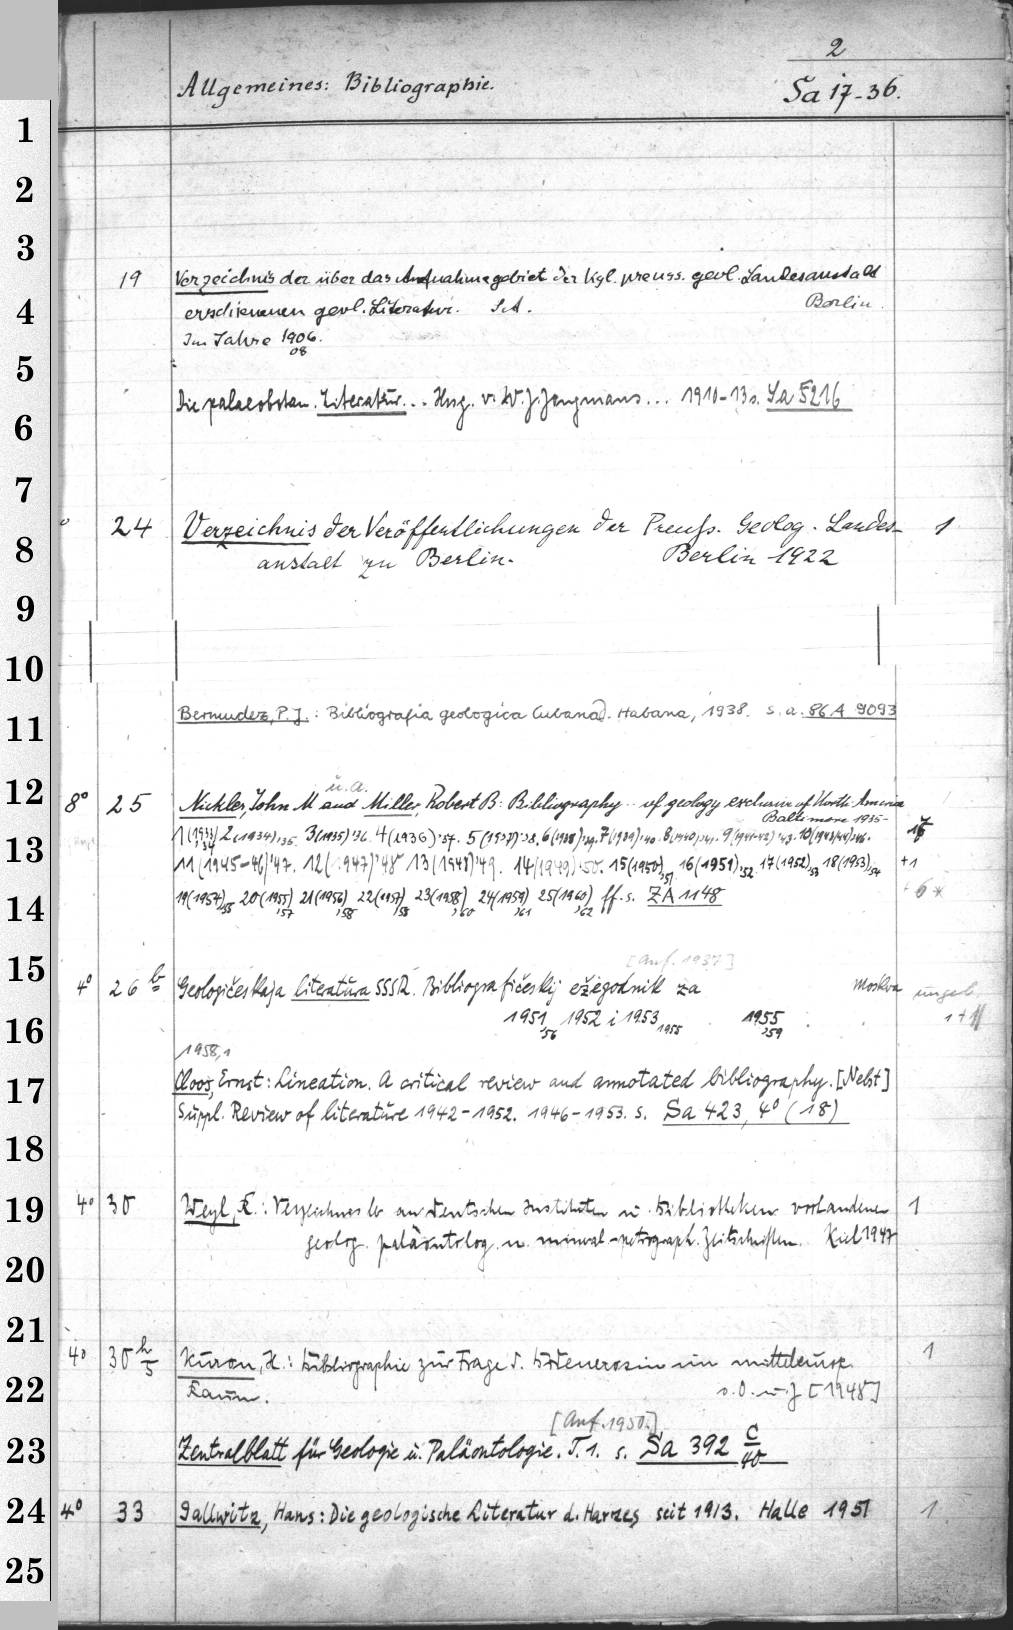 2
Allgemeines: Bibliographie. Sa 17-36.
1
2
3
19 Verzeichnis der über das Aufnahmegebiet der Kgl. preuss. geol. Landesanstalt
4 erschienenen geol. Literatur. S.A. Berlin.
Im Jahre 1906.
08
5
Die palaeobotan. Literatur... Hrsg. v. W. J. Jongmans... 1910-13 s. Sa 5216
6
7
24 Verzeichnis der Veröffentlichungen der Preuß. Geolog. Landes- 1
8 anstalt zu Berlin. Berlin 1922
9
10
11 Bermudez, P.J.: Bibliografia geologica Cubana. Habana, 1938. s.a. 86 A 9093
u.a.
12 8° 25 Nickles, John M and Miller, Robert B: Bibliography .. of geology exclusive of North America
Baltimore 1935-
13 1(1933)'34 2(1934)'35 3(1935)'36. 4(1936)'37. 5(1937)'38. 6(1938)'39. 7(1939)'40. 8(1940)'41. 9(1941-42)'43. 10(1943/44)'46.
11(1945-46)'47. 12(1947)'48 13(1948)'49. 14(1949)'50. 15(1950)'51 16(1951)'52 17(1952)'53 18(1953)'54 +1
14 19(1954)'55 20(1955)'57 21(1956)'58 22(1957)'58 23(1958)'60 24(1959)'61 25(1960)'62 ff. s. ZA 1148 +6*
[Anf. 1937]
15 4° 26 b Geologičeskaja literatura SSSR. Bibliografičeskij ežegodnik za Moskva ungeb.
16 1951,56 1952 i 1953,1955 1955,59
1958,1
17 Cloos, Ernst: Lineation. A critical review and annotated bibliography. [Nebst]
Suppl. Review of literature 1942-1952. 1946-1953. s. Sa 423, 4° (18)
18
19 4° 30 Weyl, R.: Verzeichnis der an deutschen Instituten u. Bibliotheken vorhandenen 1
geolog. paläontolog. u. mineral-petrograph. Zeitschriften. Kiel 1947
20
21
4° 30 h/5 Kuron, H.: Bibliographie zur Frage d. Bodenerosion im mitteleurop. 1
22 Raum. o.O. u. J [1948]
[Anf. 1950.]
23 Zentralblatt für Geologie u. Paläontologie. T. 1. s. Sa 392 C/40
24 4° 33 Gallwitz, Hans: Die geologische Literatur d. Harzes seit 1913. Halle 1951 1
25